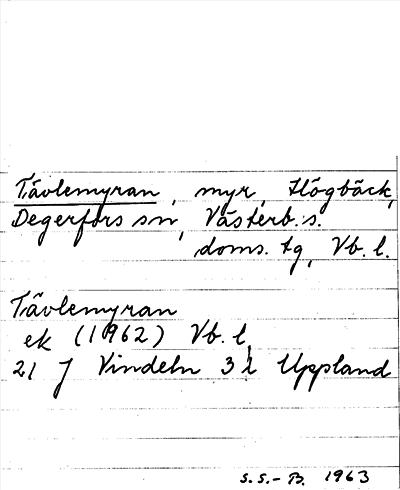 Tävlemyran, myr, Högbäck,
Degerfors sn, Västerb. s.
doms. tg, Vb. l.
Tävlemyran
ek (1962) Vb. l.
21 J Vindeln 3 l Uppland
S. S.-B. 1963